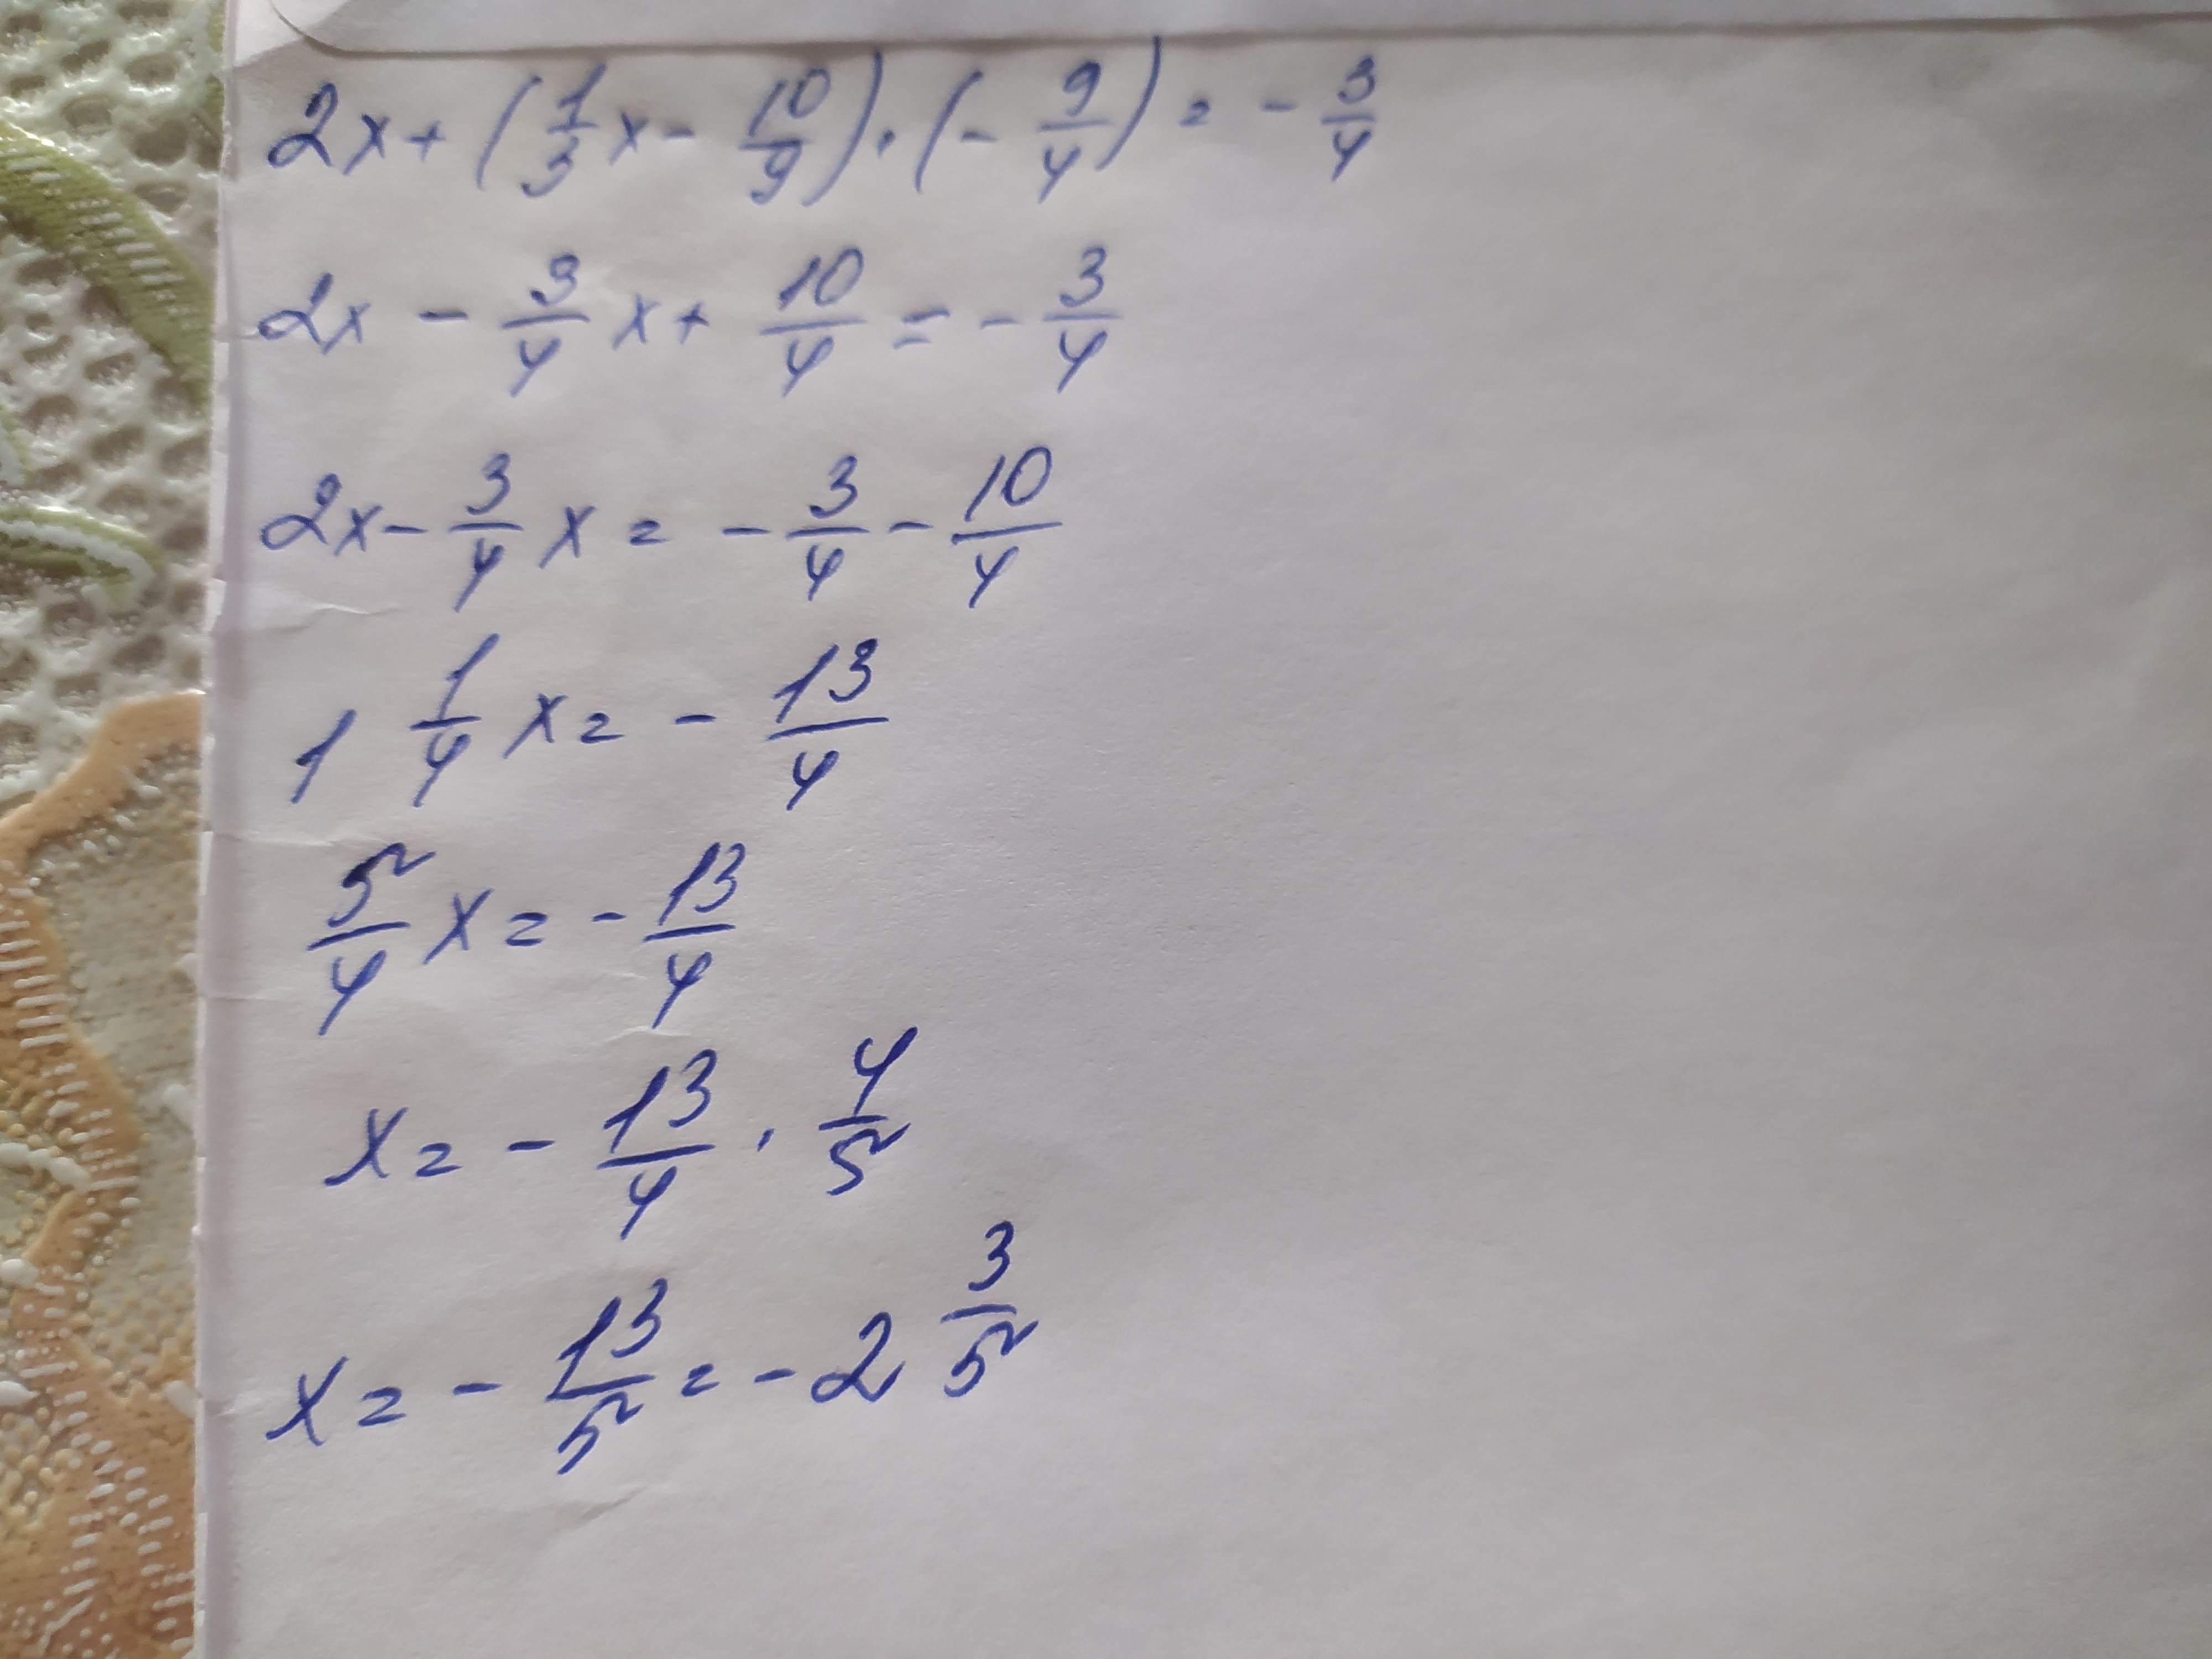 2x + (1/3 x - 10/9) · (- 9/4) = - 3/4
2x - 3/4 x + 10/4 = - 3/4
2x - 3/4 x = - 3/4 - 10/4
1 1/4 x = - 13/4
5/4 x = - 13/4
x = - 13/4 · 4/5
x = - 13/5 = - 2 3/5